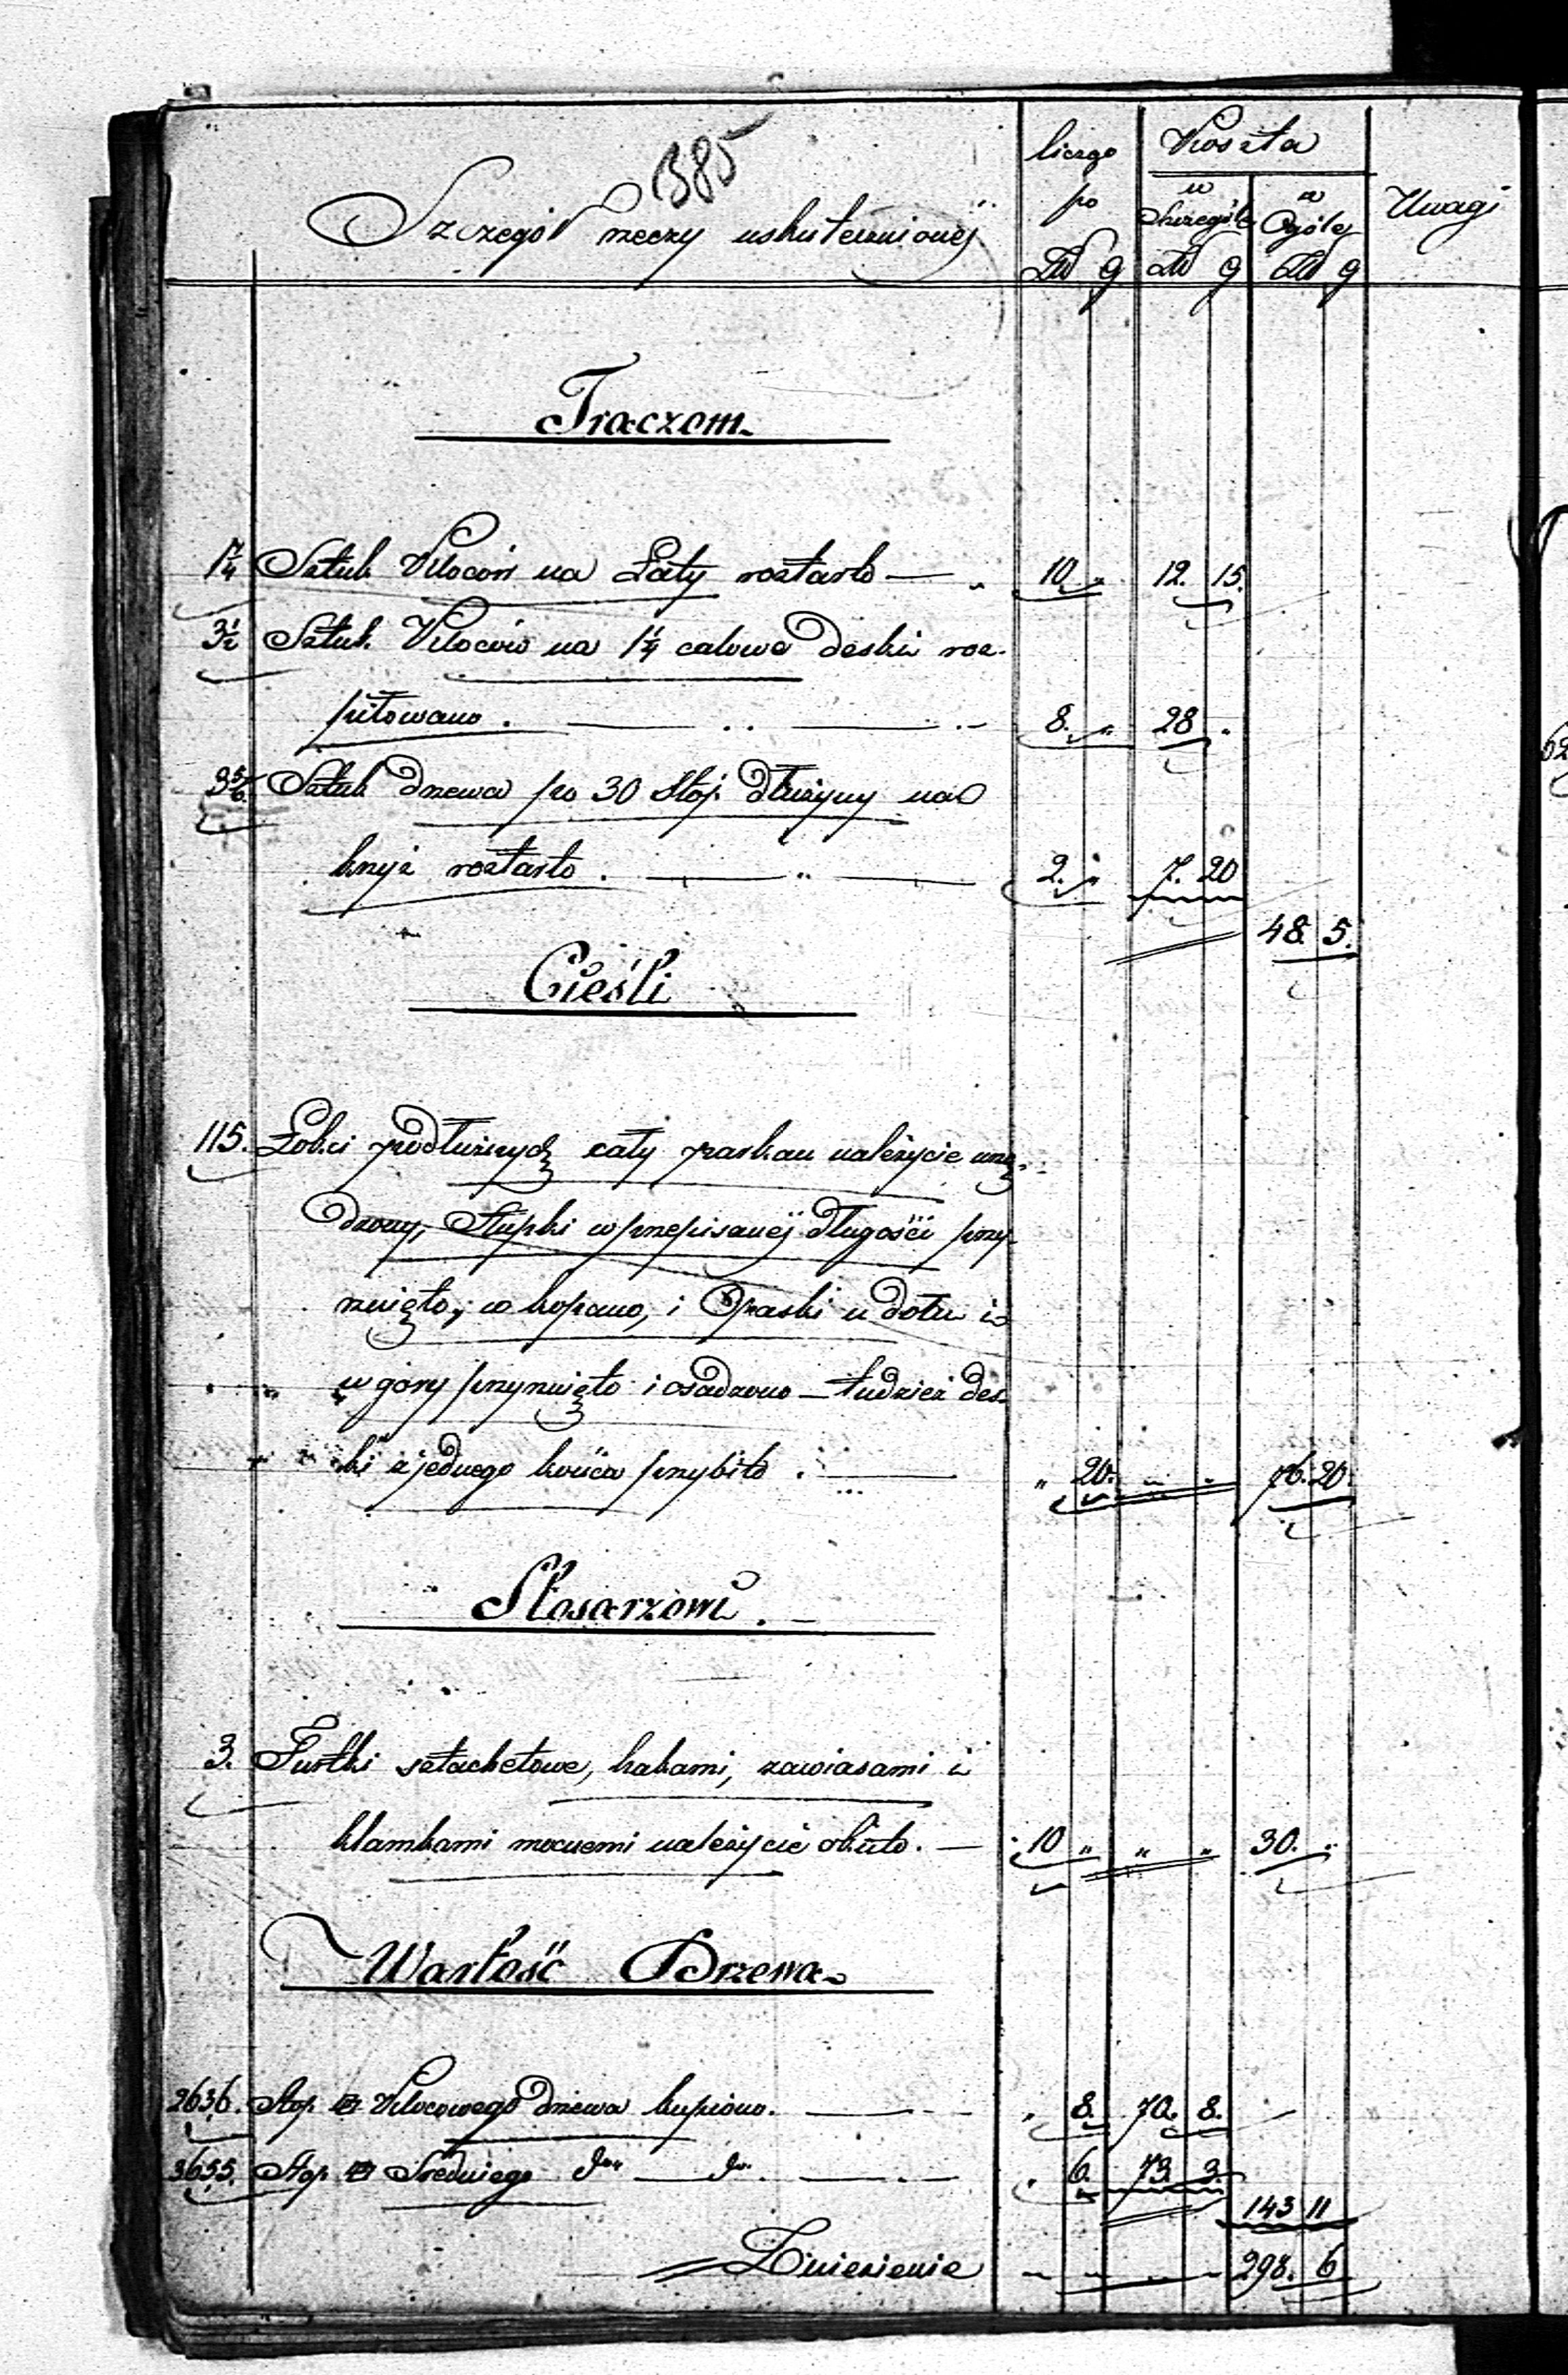 385
liczgo Koszta
Szczegół rzeczy uskutecznionéj po w Szczególe w Ogóle Uwagi
Zł g Zł g Zł g
Traczom
1 1/4 Sztuk Kloców na Łaty roztarto — „ 10 „ 12. 15.
3 1/2 Sztuk Kloców na 1 1/4 calowe deski roz-
piłowano. — 8. „ 28 „
3 5/6 Sztuk drzewa po 30 Stóp dłużyny na
krzyż roztarto. — „ — 2. „ 7. 20
48. 5.
Cieśli
115. Łokci podłużnych cały parkan należycie urzą-
dzony, Słupki w przepisanéj długości przy-
rznięto, wkopano, i Opaski u dołu i
w góry przyrznięto i osadzono — tudzież des-
ki z jednego końca przybito. — „ 20. „ „ 76. 20.
Slosarzowi. —
3. Furtki sztachetowe, hakami, zawiasami i
klamkami mocnemi należycie obito. — 10 „ „ „ 30. „
Wartość Drzewa
263,6. Stop Klocowego drzewa kupiono. — „ 8. 70. 8.
365,5. Stop Średniego dto — do. — „ 6. 73. 3.
143 11
Zniesienie „ „ „ „ 298. 6